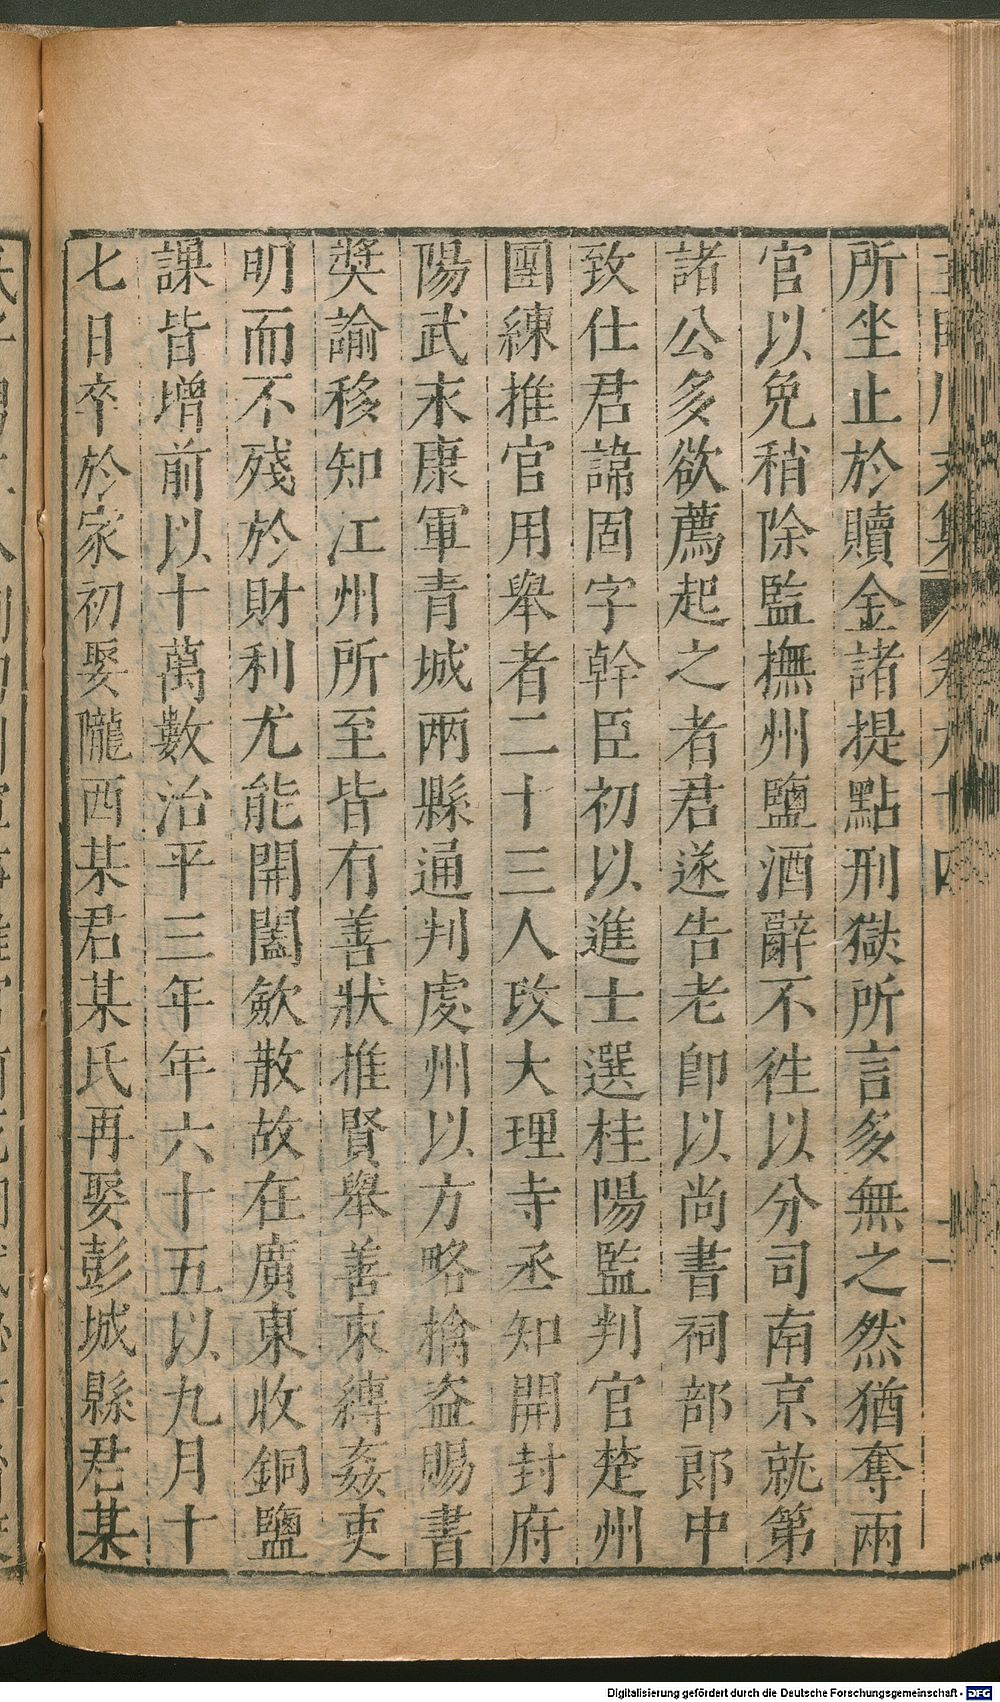 所坐止於贖金諸提點刑獄所言多無之然猶奪兩
官以免稍除監撫州鹽酒辭不徃以分司南京就第
諸公多欲薦起之者君遂告老卽以尚書祠部郎中
致仕君諱固字幹臣初以進士選桂陽監判官楚州
團練推官用舉者二十三人攺大理寺丞知開封府
陽武末康軍青城兩縣通判虔州以方略擒盗賜書
奬諭移知江州所至皆有善狀推賢舉善束縛姦吏
明而不殘於財利尤能開闔歛散故在廣東收銅鹽
課皆增前以十萬數治平三年年六十五以九月十
七日卒於家初娶隴西某君某氏再娶彭城縣君某
Digitalisierung gefördert durch die Deutsche Forschungsgemeinschaft - DFG